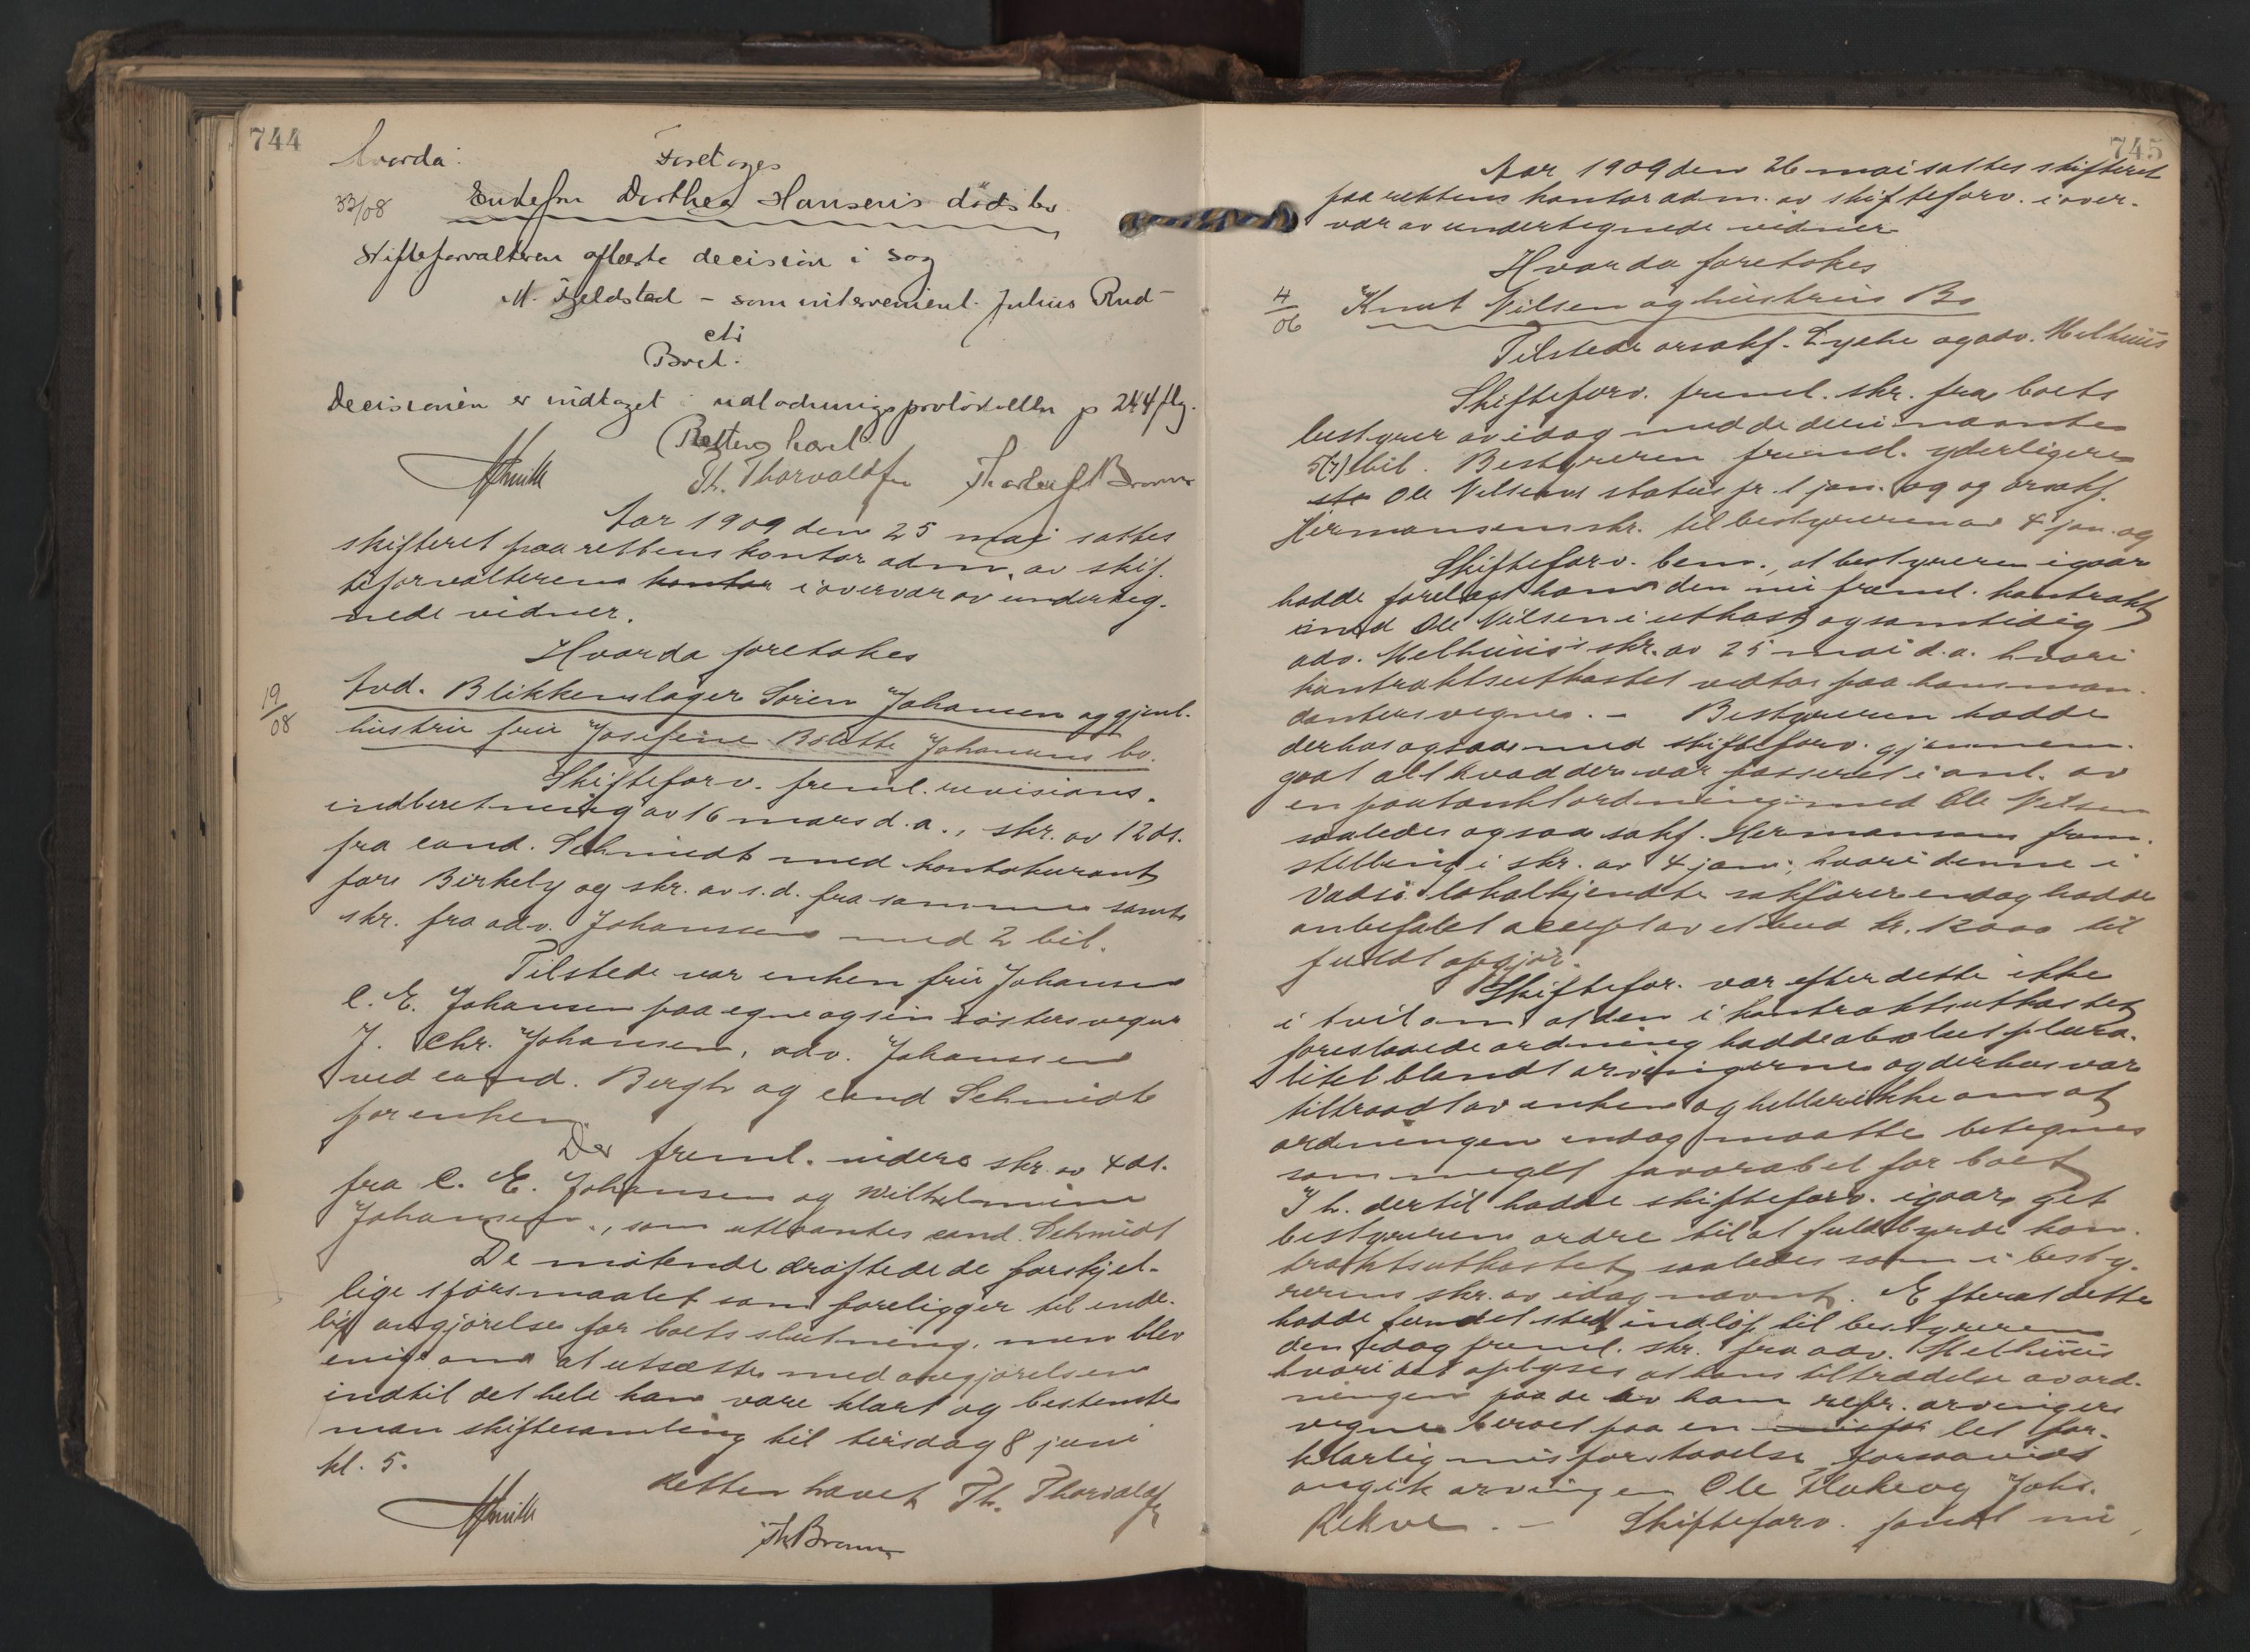 744
Hvorda
Foretoges
33/08 Enkefru Dorthea Hansens dødsbo
Skifteforvalteren oplæste decision i sag
M. Fjeldstad – som intervenient Julius Rud –
ctr
Boet.
Decisionen er indtaget i udlodningsprotokollen p 244 flg.
Retten hævet
Th. Thorvaldsen Thorleif Braun
Aar 1909 den 25 mai sattes
skifteret paa rettens kontor adm. av skif-
teforvalteren kontor i overvær av underteg-
nede vidner.
Hvorda foretokes
19/08 Avd. Blikkenslager Søren Johansen og gjenl.
hustru fru Josefine Bolette Johansens bo.
Skifteforv. freml. revisions-
indberetning av 16 mars d.a., skr. av 12 ds.
fra cand. Schmidt med kontokurant
fore Birkely og skr. av s.d. fra samme samt
skr. fra adv. Johanssen med 2 bil.
Tilstede var enken fru Johansen
C. E. Johansen paa egne og sin søsters vegne
J. Chr. Johansen, adv. Johanssen
ved cand. Bergh og cand Schmidt
for enken.
Der freml. videre skr. av 4 ds.
fra C. E. Johansen og Wilhelmine
Johansen, som utlaantes cand. Schmidt
De møtende drøftede de forskjel-
lige spørsmaalet som foreligger til ende-
lig avgjørelse for boets slutning, men blev
enige om at utsætte med avgjørelsen
indtil det hele kan være klart og bestemte
man skiftesamling til tirsdag 8 juni
kl. 5.
Retten hævet Th. Thorvaldsen
Th Braun
745
Aar 1909 den 26 mai sattes skifteret
paa rettens kontor adm. av skifteforv. i over-
vær av undertegnede vidner
Hvorda foretokes
4/06 Knut Nilsen og hustrus Bo
Tilstede orsakf. Lyche og adv. Melhuus
Skifteforv. freml. skr. fra boets
bestyrer av idag med de deri nævnte
5(7) bil. Bestyreren freml. yderligere
Ole Nilsens status pr. 1 jan. og og orsakf.
Hermansens skr. til bestyreren av 4 jan. og
Skifteforv. bem., at bestyreren igaar
hadde forelagt ham den nu freml. kontrakt
med Ole Nilsen i utkast og samtidig
adv. Melhuus' skr. av 25 mai d.a. hvori
kontraktsutkastet vedtas paa hans man-
danters vegne. – Bestyreren hadde
derhos ogsaa med skifteforv. gjennem-
gaat alt hvad der var passeret i anl. av
en paatænkt ordning med Ole Nilsen
saaledes ogsaa sakf. Hermansens frem-
stilling i skr. av 4 jan., hvori denne i
Vadsø lokalkjendte sakfører endog hadde
anbefalet accept av et bud kr. 12000 til
fuldt opgjør.
Skiftefor. var efter dette ikke
i tvil om at den i kontraktsutkastet
foreslaaede ordning hadde absolut plura-
litet blandt arvingerne og derhos var
tiltraadt av enken og heller ikke om at
ordningen endog maatte betegnes
som meget favorabel for boet
I h. dertil hadde skifteforv. igaar get
bestyreren ordre til at fuldbyrde kon-
traktsutkastet saaledes som i besty-
rerens skr. av idag nævnt. Efter at dette
hadde fundet sted indløp til bestyreren
den idag freml. skr. fra adv. Melhuus
hvori det oplyses at hans tiltrædelse av ord-
ningen paa de av ham repr. arvingers
vegne beroet paa en let for-
klarlig misforstaaelse forsaavidt
angik arvingen Ole Flake og Johs.
Rekve. – Skifteforv. fandt nu